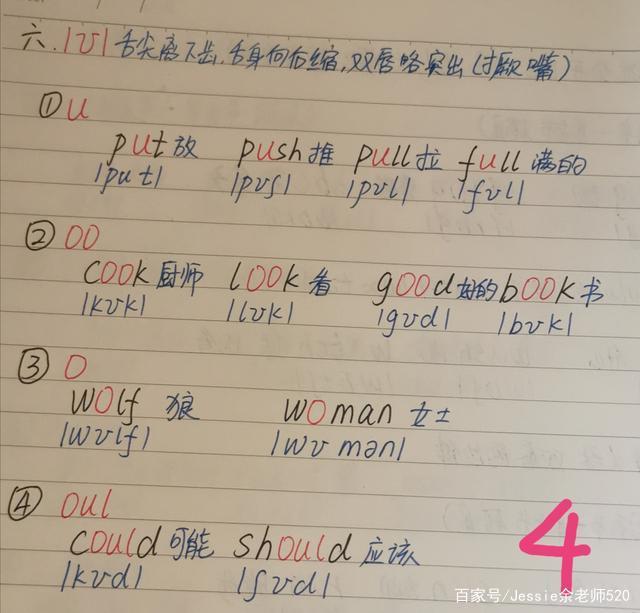 六. /ʊ/ 舌尖离下齿,舌身向后缩,双唇略突出(讨厌嘴)
① u
put 放 push 推 pull 拉 full 满的
/put/ /pʊʃ/ /pʊl/ /fʊl/
② oo
cook 厨师 look 看 good 好的 book 书
/kʊk/ /lʊk/ /gʊd/ /bʊk/
③ o
wolf 狼 woman 女士
/wʊlf/ /wʊ mən/
④ oul
could 可能 should 应该
/kʊd/ /ʃʊd/
4
百家号/Jessie余老师520